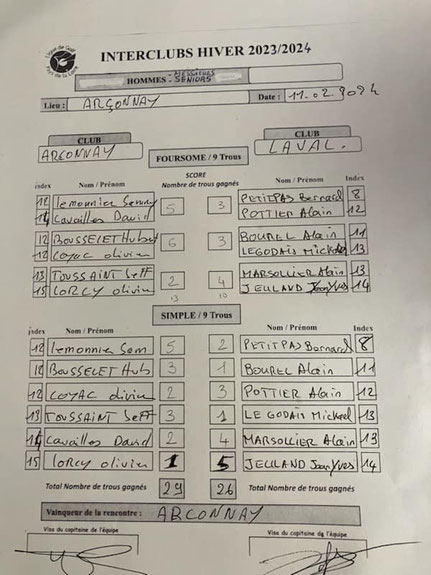 Ligue de Golf
Pays de la Loire
INTERCLUBS HIVER 2023/2024
HOMMES - MESSIEURS SENIORS
Lieu : ARÇONNAY Date : 11.02.2024
CLUB CLUB
ARCONNAY LAVAL.
FOURSOME / 9 Trous
SCORE
Index Nom / Prénom Nombre de trous gagnés Nom / Prénom Index
12 lemonnier 5 3 PETITPAS Bernard 8
14 Cavailles David POTTIER Alain 12
12 BOUSSELET Hubert 6 3 BOUREL Alain 11
12 COYAC olivier LEGODAIS Mickael 13
13 TOUSSAINT Jeff 2 4 MARSOLLIER Alain 13
15 LORCY olivier JEULAND Jean Yves 14
13 10
SIMPLE / 9 Trous
index Nom / Prénom Nom / Prénom Index
12 lemonnier Sam 5 2 PETITPAS Bernard 8
12 BOUSSELET Hub 3 1 BOUREL Alain 11
12 COYAC olivier 2 3 POTTIER Alain 12
13 TOUSSAINT Jeff 3 1 LE GODAIS Mickael 13
14 Cavailles David 2 4 MARSOLLIER Alain 13
15 LORCY olivier 1 5 JEULAND Jean Yves 14
Total Nombre de trous gagnés 29 26 Total Nombre de trous gagnés
Vainqueur de la rencontre : ARCONNAY
Visa du capitaine de l'équipe Visa du capitaine de l'équipe